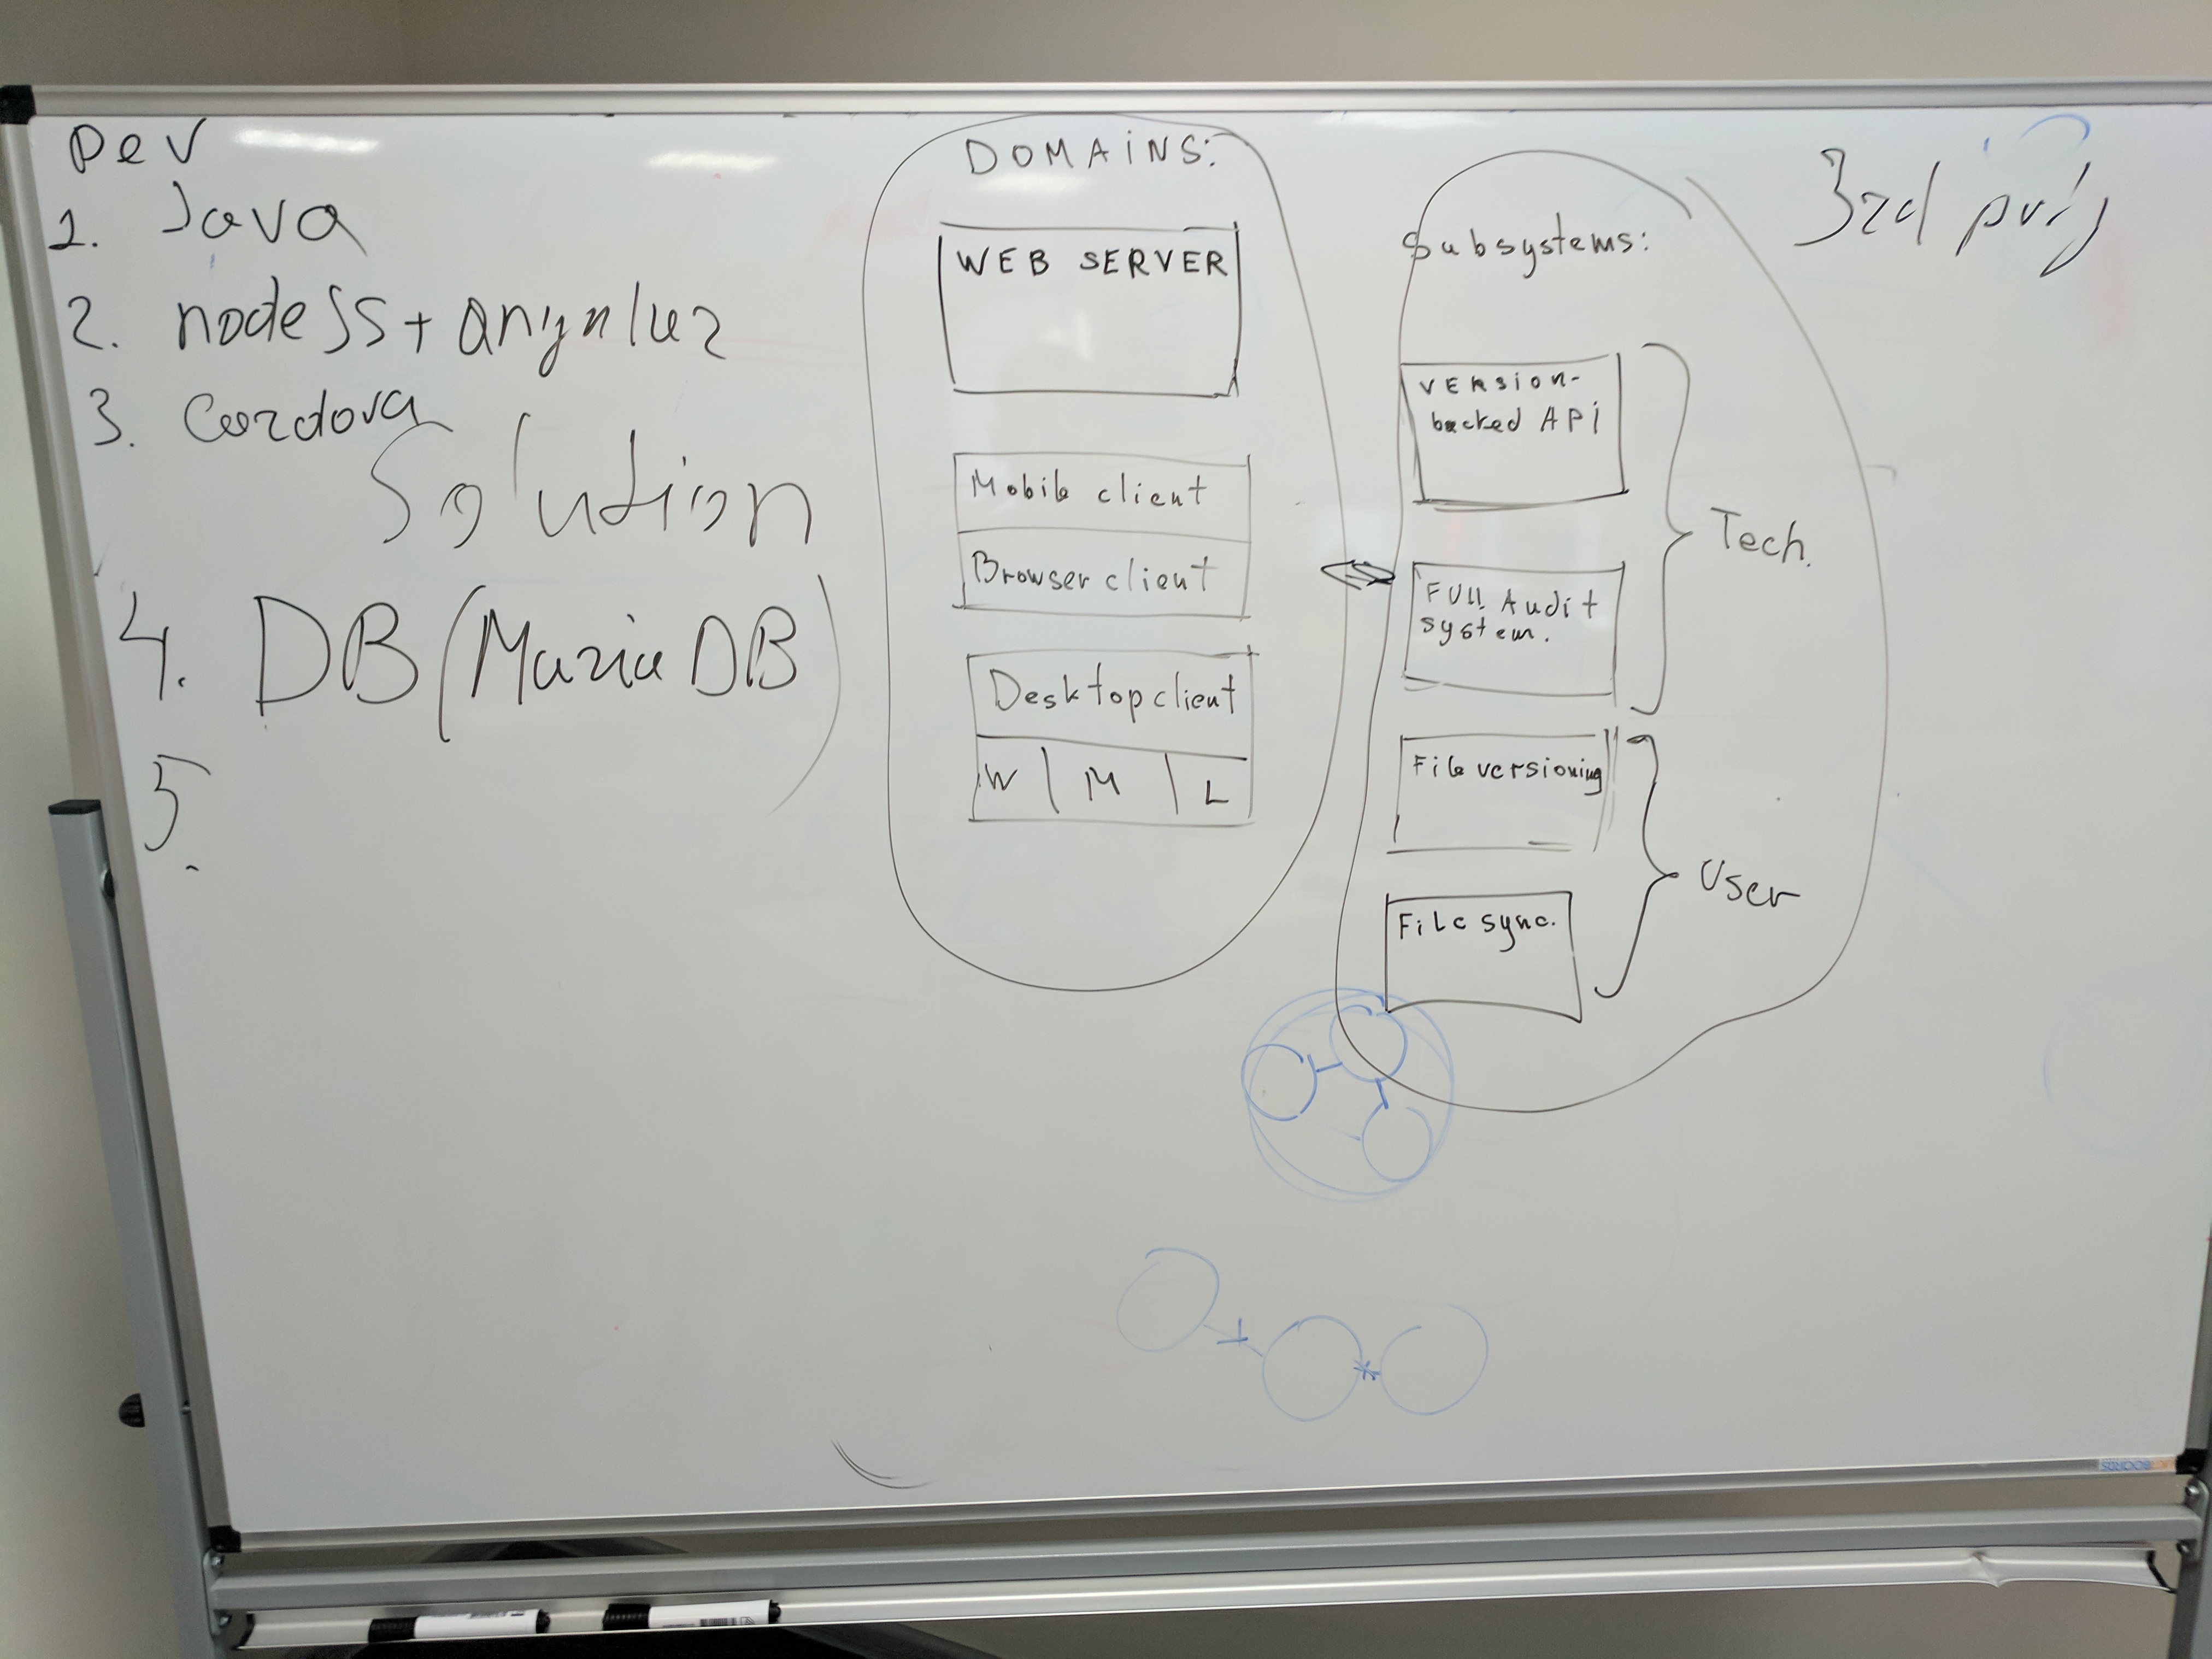 Dev
1. Java
2. nodeJS + angular 2
3. Cordova
Solution
4. DB (Maria DB)
5.
DOMAINS:
WEB SERVER
Mobile client
Browser client
Desktop client
W | M | L
Subsystems:
VERSION-
backed API
FUll Audit
system.
Tech.
File versioning
File sync.
User
3rd